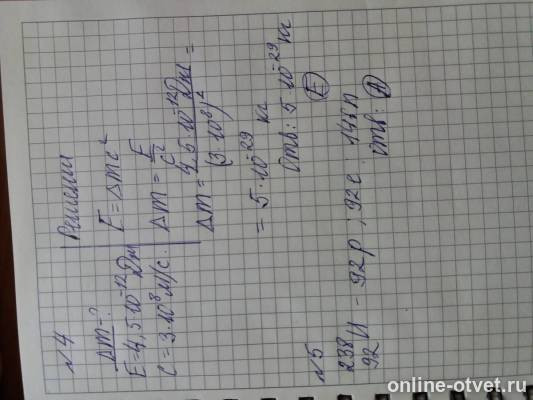 №4
Δm-?
E=4,5·10⁻¹²Дж
C=3·10⁸м/с.
Решении
E=Δmc²
Δm=E/c²
Δm=4,5·10⁻¹²Дж/(3·10⁸)²=
=5·10⁻²⁹ кг
Отв: 5·10⁻²⁹кг
Е
№5
²³⁸₉₂U - 92p; 92e; 146n
Отв: А
online-otvet.ru